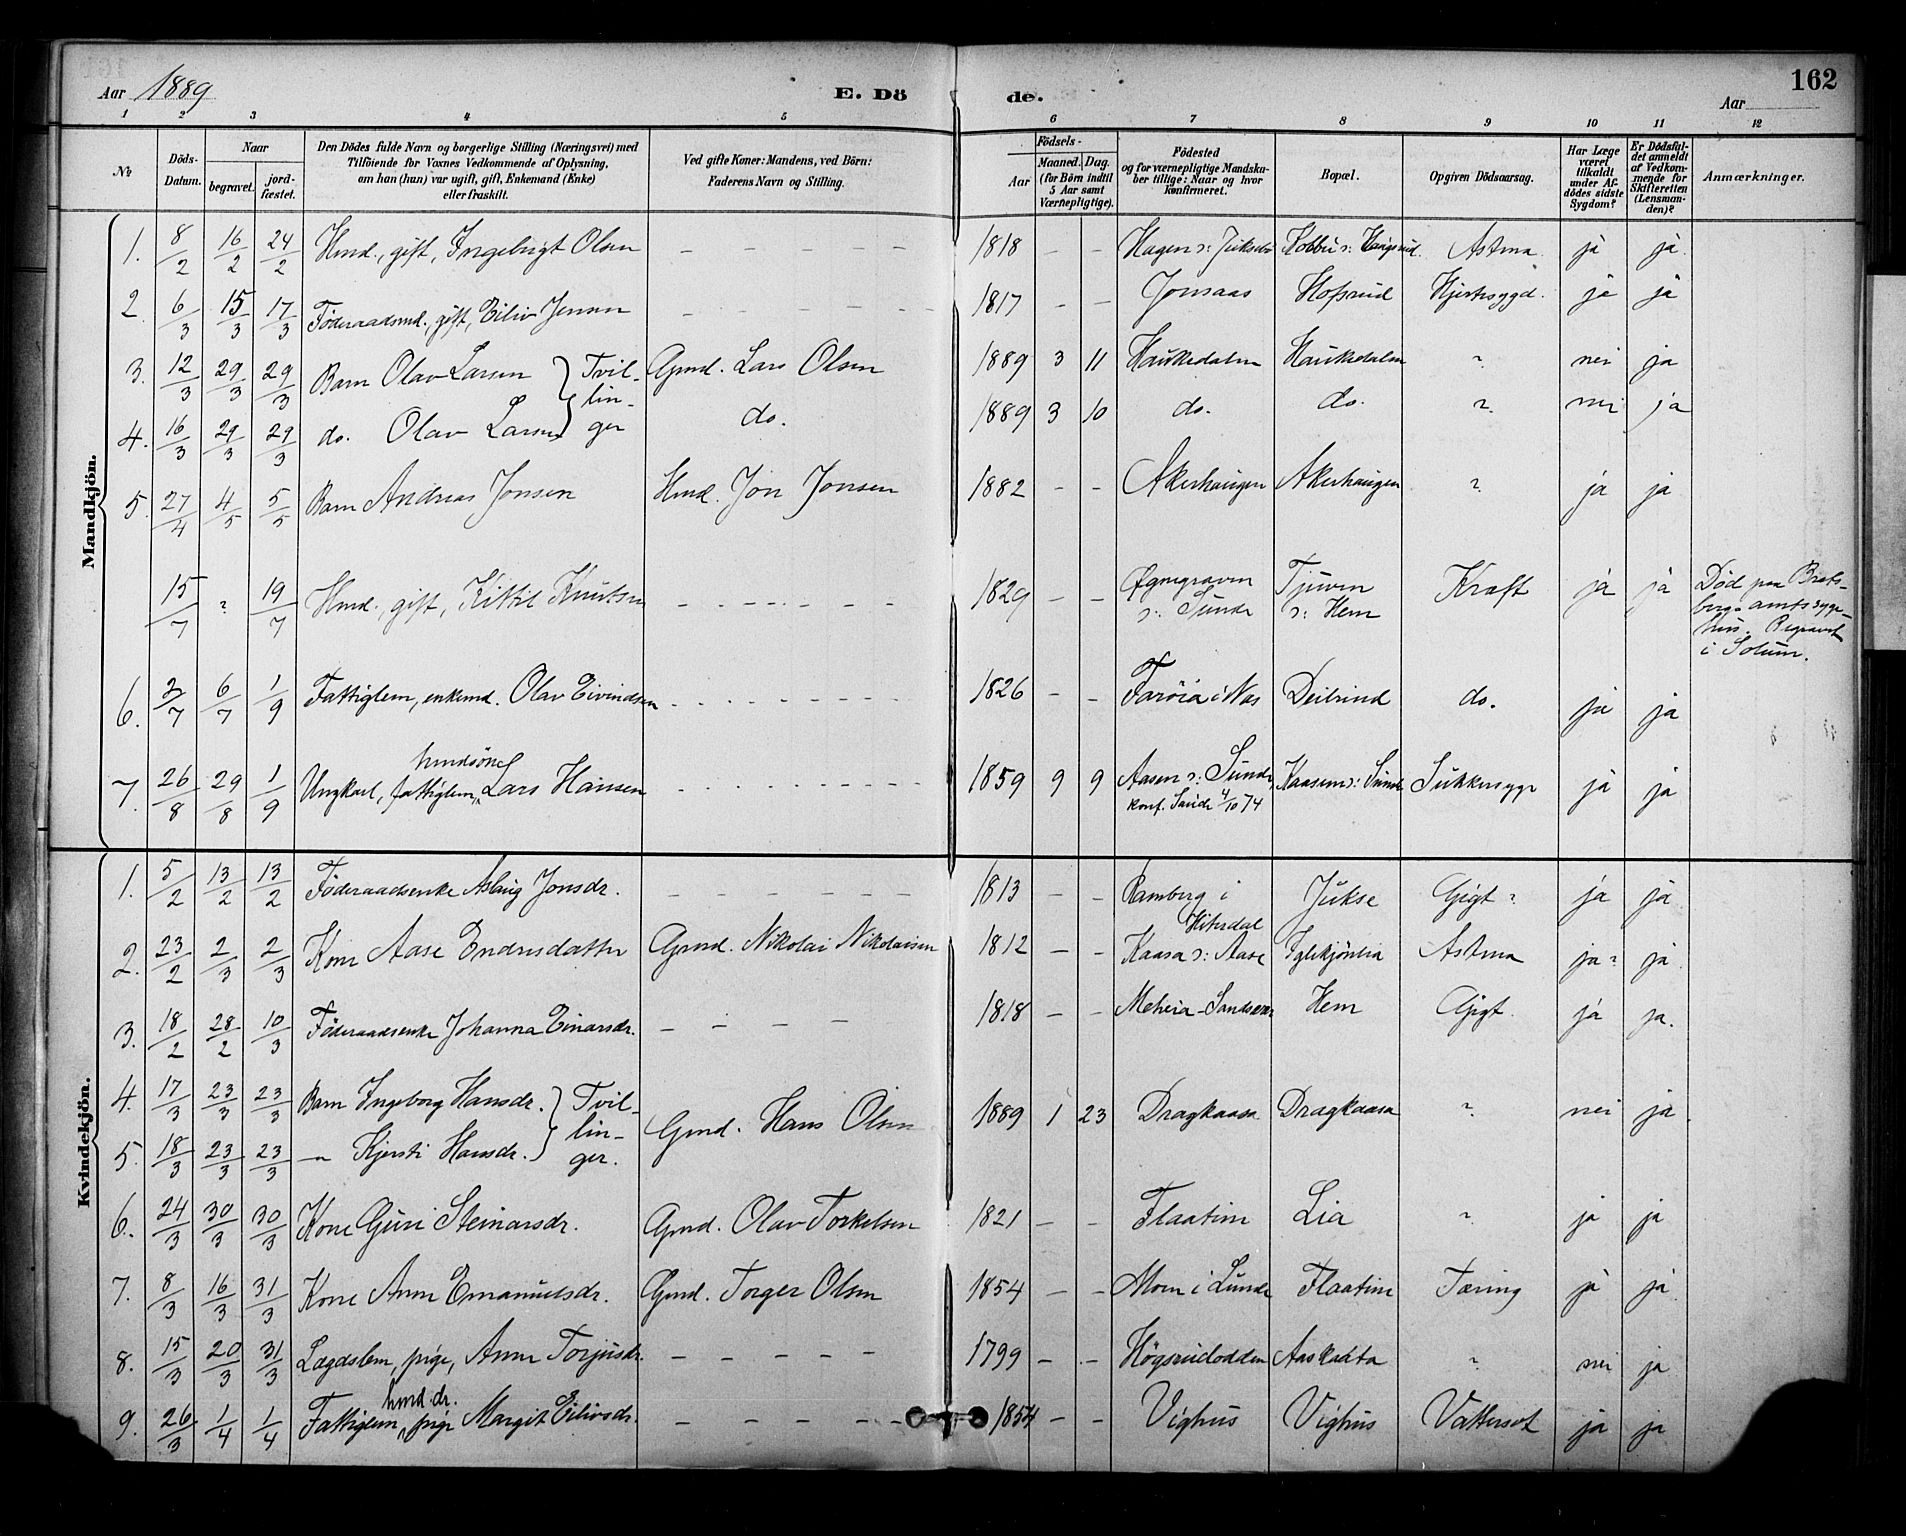 162
Aar 1889 E. Döde. Aar
1 2 3 4 5 6 7 8 9 10 11 12
No Döds-Datum. Naar begravet. jordfæstet. Den Dödes fulde Navn og borgerlige Stilling (Næringsvei) med Tilföiende for Voxnes Vedkommende af Oplysning, om han (hun) var ugift, gift, Enkemand (Enke) eller fraskilt. Ved gifte Koner: Mandens, ved Börn: Faderens Navn og Stilling. Födsels- Aar Maaned. Dag. (for Börn indtil 5 Aar samt Værnepligtige). Födested og for værnepligtige Mandskaber tillige: Naar og hvor Konfirmeret. Bopæl. Opgiven Dödsaarsag. Har Læge været tilkaldt under Afdödes sidste Sygdom? Er Dödsfaldet anmeldt af Vedkommende for Skifteretten (Lensmanden)? Anmærkninger.
Mandkjön.
1. 8/2 16/2 24/2 Hmd., gift, Ingebrigt Olsen - - - - - 1818 - - Hagen Kobbu Astma ja ja.
2. 6/3 15/3 17/3 Föderaadsmd., gift, Eiliv Jensen - - - - - 1817 - - Jonsaas Hofsrud Hjertesygd. ja ja
3. 12/3 29/3 29/3 Barn Olav Larsen } Tvil- Gmd. Lars Olsen 1889 3 11 Haukedalen Haukedalen ? nei ja
lin-
4. 16/3 29/3 29/3 do. Olav Larsen } ger do. 1889 3 10 do. do. ? nei ja
5. 27/4 4/5 5/5 Barn Andreas Jonsen Hmd. Jon Jonsen 1882 - - Akerhaugen Akerhaugen ? ja ja
15/7 ? 19/7 Hmd., gift, Kittil Knutsen - - - - - 1829 - - Øgnegraven ɔ: Sunde Tjuven ɔ: Hem Kræft ja ja Død paa Brats-
bergs amts syge-
hus. Begravet
i Solum.
6. 2/7 6/7 1/9 Fattiglem, enkemd. Olav Eivindsen - - - - - 1826 - - Farøia i Nes Deilrind do. ja ja
7. 26/8 29/8 1/9 Ungkarl, fattiglem, hmdsön Lars Hansen - - - - - 1859 9 9 Aasen ɔ: Sunde, konf. Saude 4/10 74 Kaasene ɔ: Sunde Sukkersyge ja ja
Kvindekjön.
1. 5/2 13/2 13/2 Föderaadsenke Aslaug Jonsdr. - - - - - 1813 - - Ramberg i Hitterdal Jukse Gigt ? ja ja
2. 23/2 2/3 2/3 Kone Aase Endresdatter Gmd. Nikolai Nikolaisen 1812 - - Kaasa ɔ: Aase Iglekjönlia Astma ja ? ja
3. 18/2 28/2 10/3 Föderaadsenke Johanna Einarsdr. - - - - 1818 - - Meheia - Hem Gigt. ja ja.
4. 17/3 23/3 23/3 Barn Ingeborg Hansdr. } Tvil- Gmd. Hans Olsen 1889 1 23 Dragkaasa Dragkaasa ? nei ja
lin-
5. 18/3 23/3 23/3 — Kjersti Hansdr. } ger.
6. 24/3 30/3 30/3 Kone Guri Steinarsdr. Gmd. Olav Torkelsen 1821 - - Flaatine Lia ? ja ja
7. 8/3 16/3 31/3 Kone Anne Emanuelsdr. Gmd. Torger Olsen 1854 - - Moen i Lunde Flaatine Tæring ja ja
8. 15/3 20/3 31/3 Lægdslem, pige, Anne Torjusdr. - - - - - 1799 - - Högsrudodden Aaskaata ? nei ja
9. 26/3 1/4 1/4 Fattiglem, hmd.dr. pige Margit Eilivsdr. - - - - - 1854 - - Vighus Vighus Vattersot ja ja